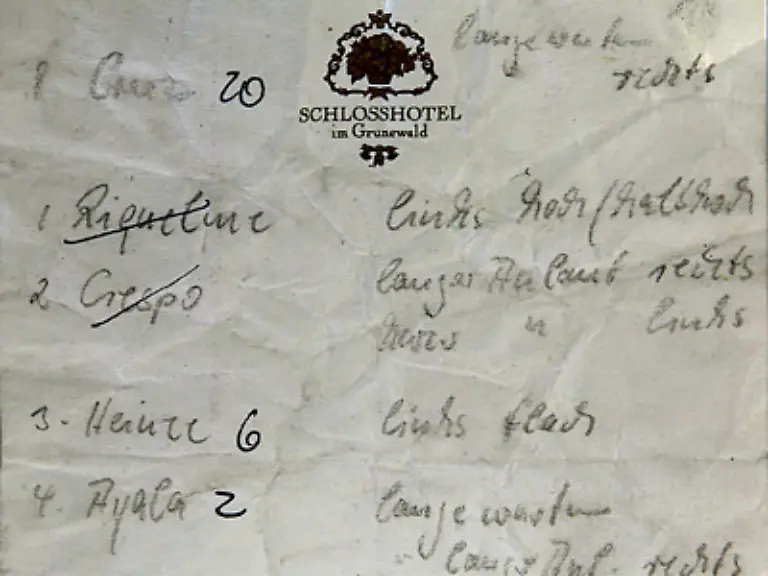 lange warten
20 rechts
SCHLOSSHOTEL
im Grunewald
1 Riquelme links hoch/halbhoch
2 Crespo langer Anlauf rechts
" links
3. Heinze 6 links flach
4. Ayala 2 lange warten
langer Anl. rechts